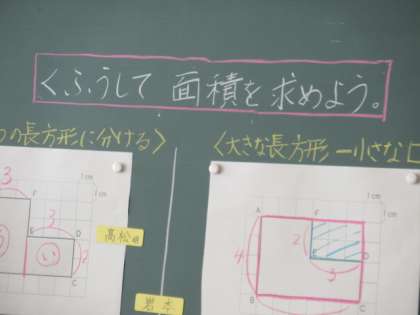 くふうして 面積を求めよう。
の長方形に分ける〉
〈大きな長方形ー小さな
3
F
3
E
D
い
2
C
1cm
1cm
高松
岩本
1cm
1cm
A
F
2
E
D
4
3
B
C